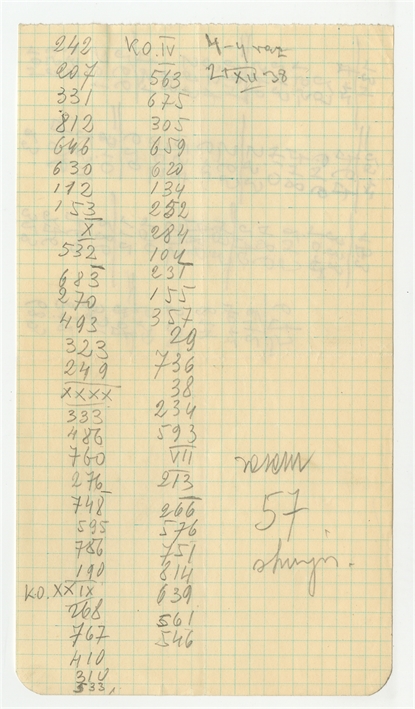 242
207
331
812
646
630
112
153
X
532
683
270
493
323
249
XXXX
333
486
760
276
748
595
786
190
K.O. XXIX
268
767
410
310
533,
K.O. IV
563
675
305
659
620
134
252
284
104
231
155
357
29
736
38
234
593
VII
213
266
576
751
814
639
561
546
4-y raz
21 XII 38
razem
57